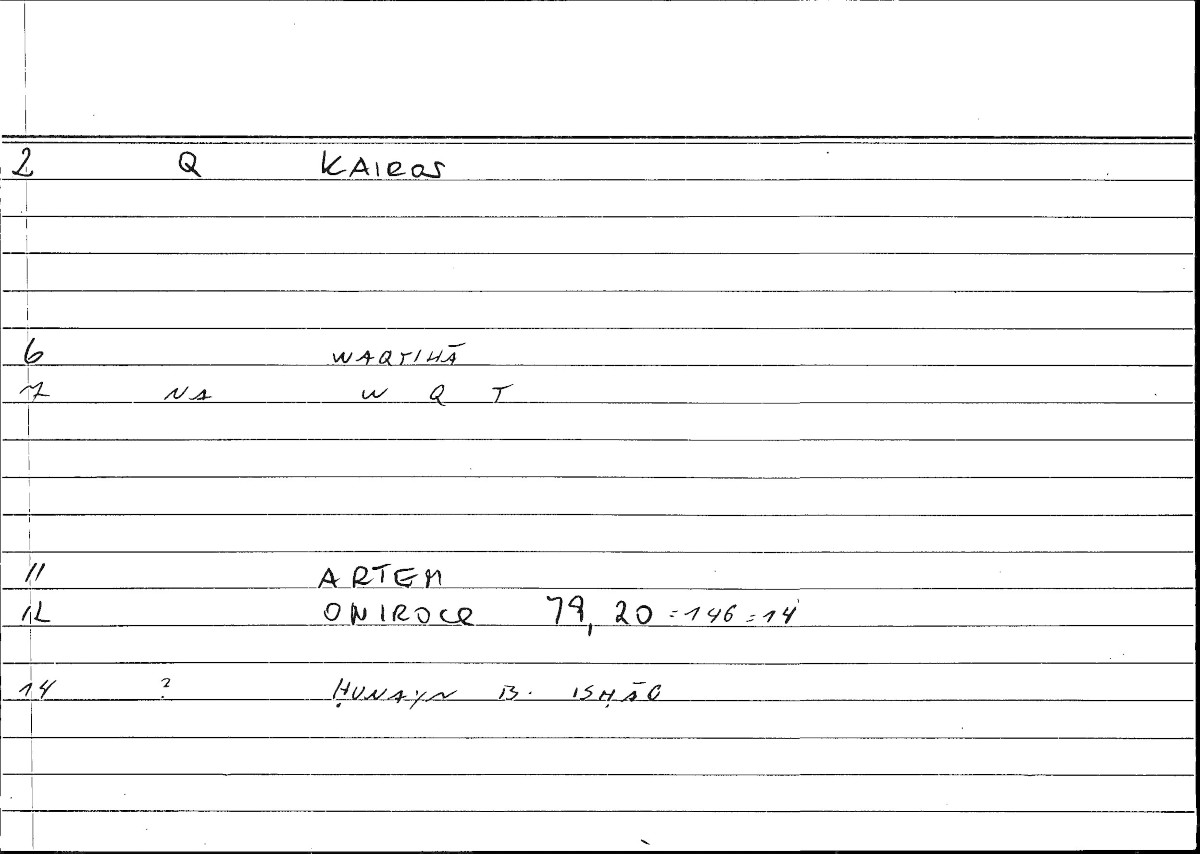 2 Q KAIROS
6 WAQTIHĀ
7 NA W Q T
11 ARTEM
12 ONIROCR 79, 20 = 146 = 14
14 ? ḤUNAYN B. ISḤĀQ